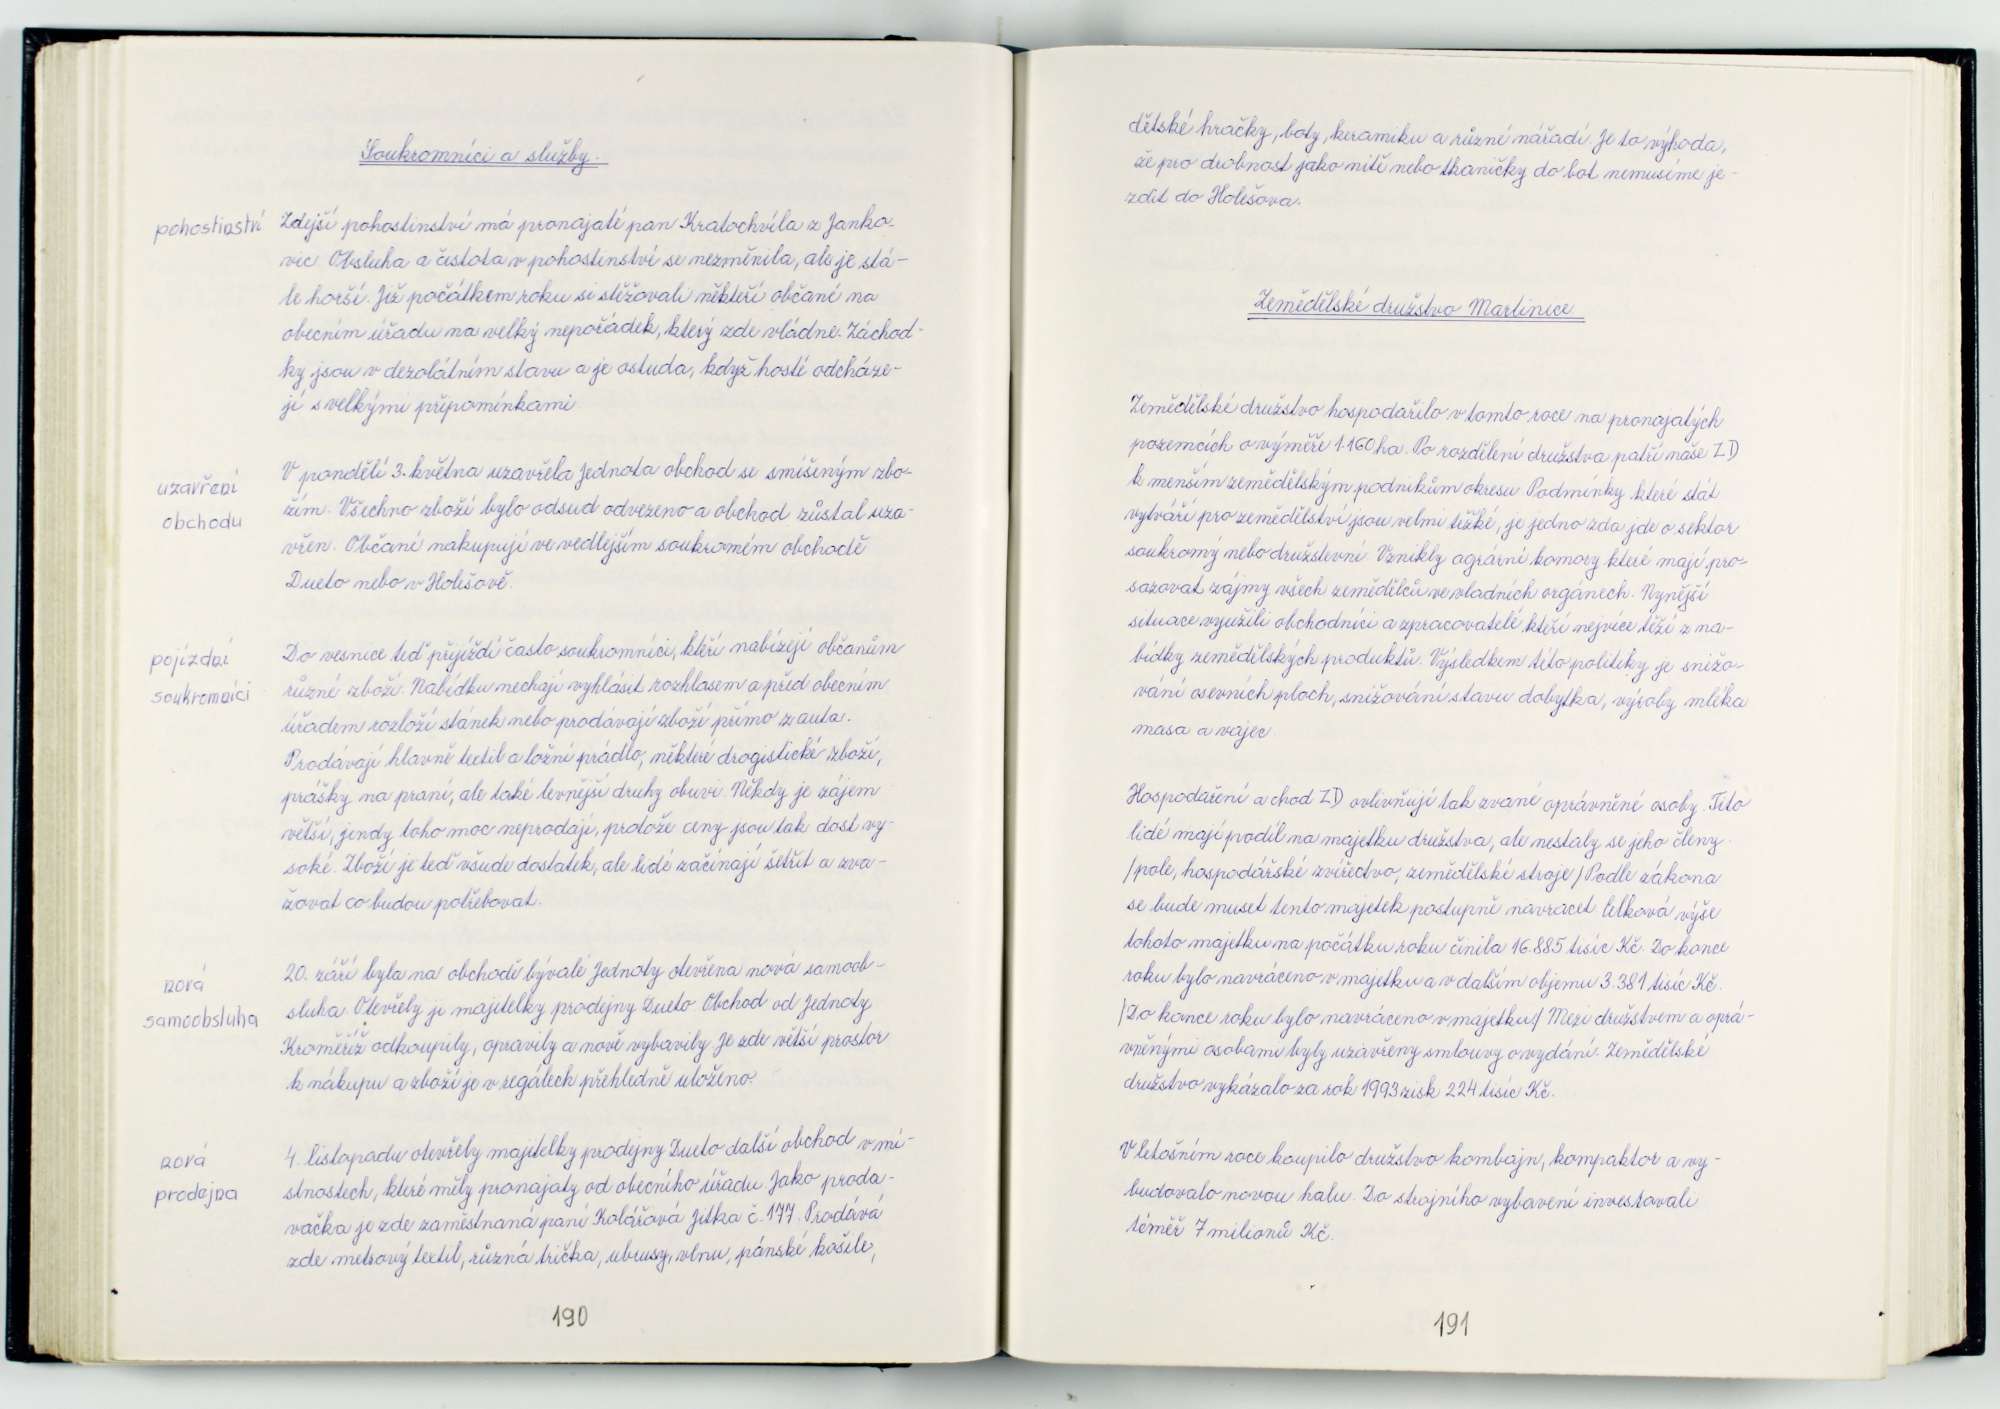 Soukromníci a služby.
pohostinství
Zdejší pohostinství má pronajaté pan Kratochvíla z Janko-
vic. Obsluha a čistota v pohostinství se nezměnila, ale je stá-
le horší. Již počátkem roku si stěžovali někteří občané na
obecním úřadu na velký nepořádek, který zde vládne. Záchod-
ky jsou v dezolátním stavu a je ostuda, když hosté odcháze-
jí s velkými připomínkami.
uzavření
obchodu
V pondělí 3. května uzavřela Jednota obchod se smíšeným zbo-
žím. Všechno zboží bylo odsud odvezeno a obchod zůstal uza-
vřen. Občané nakupují ve vedlejším soukromém obchodě
Dueto nebo v Holešově.
pojízdní
soukromníci
Do vesnice teď přijíždí často soukromníci, kteří nabízejí občanům
různé zboží. Nabídku nechají vyhlásit rozhlasem a před obecním
úřadem rozloží stánek nebo prodávají zboží přímo z auta.
Prodávají hlavně textil a ložní prádlo, některé drogistické zboží,
prášky na praní, ale také levnější druhy obuvi. Někdy je zájem
větší, jindy toho moc neprodají, protože ceny jsou tak dost vy-
soké. Zboží je teď všude dostatek, ale lidé začínají šetřit a zva-
žovat co budou potřebovat.
nová
samoobsluha
20. září byla na obchodě bývalé Jednoty otevřena nová samoob-
sluha. Otevřely ji majitelky prodejny Dueto. Obchod od Jednoty
Kroměříž odkoupily, opravily a nově vybavily. Je zde větší prostor
k nákupu a zboží je v regálech přehledně uloženo.
nová
prodejna
4. listopadu otevřely majitelky prodejny Dueto další obchod v mí-
stnostech, které měly pronajaty od obecního úřadu. Jako proda-
vačka je zde zaměstnaná paní Kolářová Jitka č. 177. Prodává
zde metrový textil, různá trička, ubrusy, vlnu, pánské košile,
190
dětské hračky, boty, keramiku a různé nářadí. Je to výhoda,
že pro drobnost jako nitě nebo tkaničky do bot nemusíme je-
zdit do Holešova.
Zemědělské družstvo Martinice
Zemědělské družstvo hospodařilo v tomto roce na pronajatých
pozemcích o výměře 1.160 ha. Po rozdělení družstva patří naše ZD
k menším zemědělským podnikům okresu. Podmínky které stát
vytváří pro zemědělství jsou velmi těžké, je jedno zda jde o sektor
soukromý nebo družstevní. Vznikly agrární komory které mají pro-
sazovat zájmy všech zemědělců ve vladních orgánech. Nynější
situace využili obchodníci a zpracovatelé kteří nejvíce těží z na-
bídky zemědělských produktů. Výsledkem této politiky je snižo-
vání osevních ploch, snižování stavu dobytka, výroby mléka
masa a vajec.
Hospodaření a chod ZD ovlivňují tak zvané oprávněné osoby. Tito
lidé mají podíl na majetku družstva, ale nestaly se jeho členy.
/pole, hospodářské zvířectvo, zemědělské stroje/ Podle zákona
se bude muset tento majetek postupně navracet. Celková výše
tohoto majetku na počátku roku činila 16.885 tisíc Kč. Do konce
roku bylo navráceno v majetku a v dalším objemu 3.381 tisíc Kč.
/Do konce roku bylo navráceno v majetku/ Mezi družstvem a oprá-
vněnými osobami byly uzavřeny smlouvy o vydání. Zemědělské
družstvo vykázalo za rok 1993 zisk 224 tisíc Kč.
V letošním roce koupilo družstvo kombajn, kompaktor a vy-
budovalo novou halu. Do strojního vybavení investovali
téměř 7 milionů Kč.
191